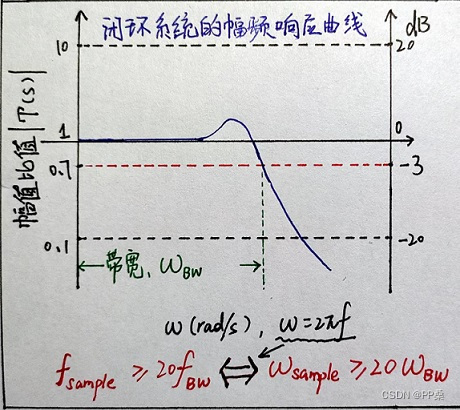 闭环系统的幅频响应曲线
dB
幅值比值|T(s)|
10
20
1
0
0.7
-3
0.1
-20
带宽, ω_BW
ω(rad/s), ω=2πf
f_sample ≥20f_BW ⟺ ω_sample ≥20ω_BW
CSDN @PP桑